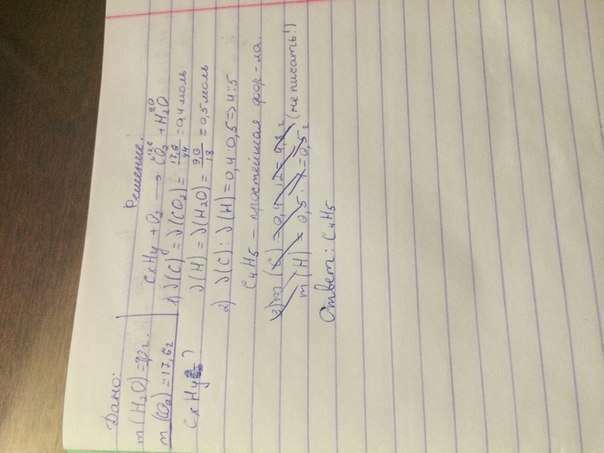 Дано:
m(H₂O)=9,0г.
m(CO₂)=17,6г
CxHy - ?
Решение:
17,6 9,0
CxHy + O₂ → CO₂ + H₂O
1) ν(C) = ν(CO₂) = 17,6/44 = 0,4 моль
ν(H) = ν(H₂O) = 9,0/18 = 0,5 моль
2) ν(C) : ν(H) = 0,4 : 0,5 => 4:5
C₄H₅ – простейшая фор-ла.
3) m(C) = 0,4 · 12 = 4,8 г
m(H) = 0,5 · 1 = 0,5 г (не писать!)
Ответ: C₄H₅